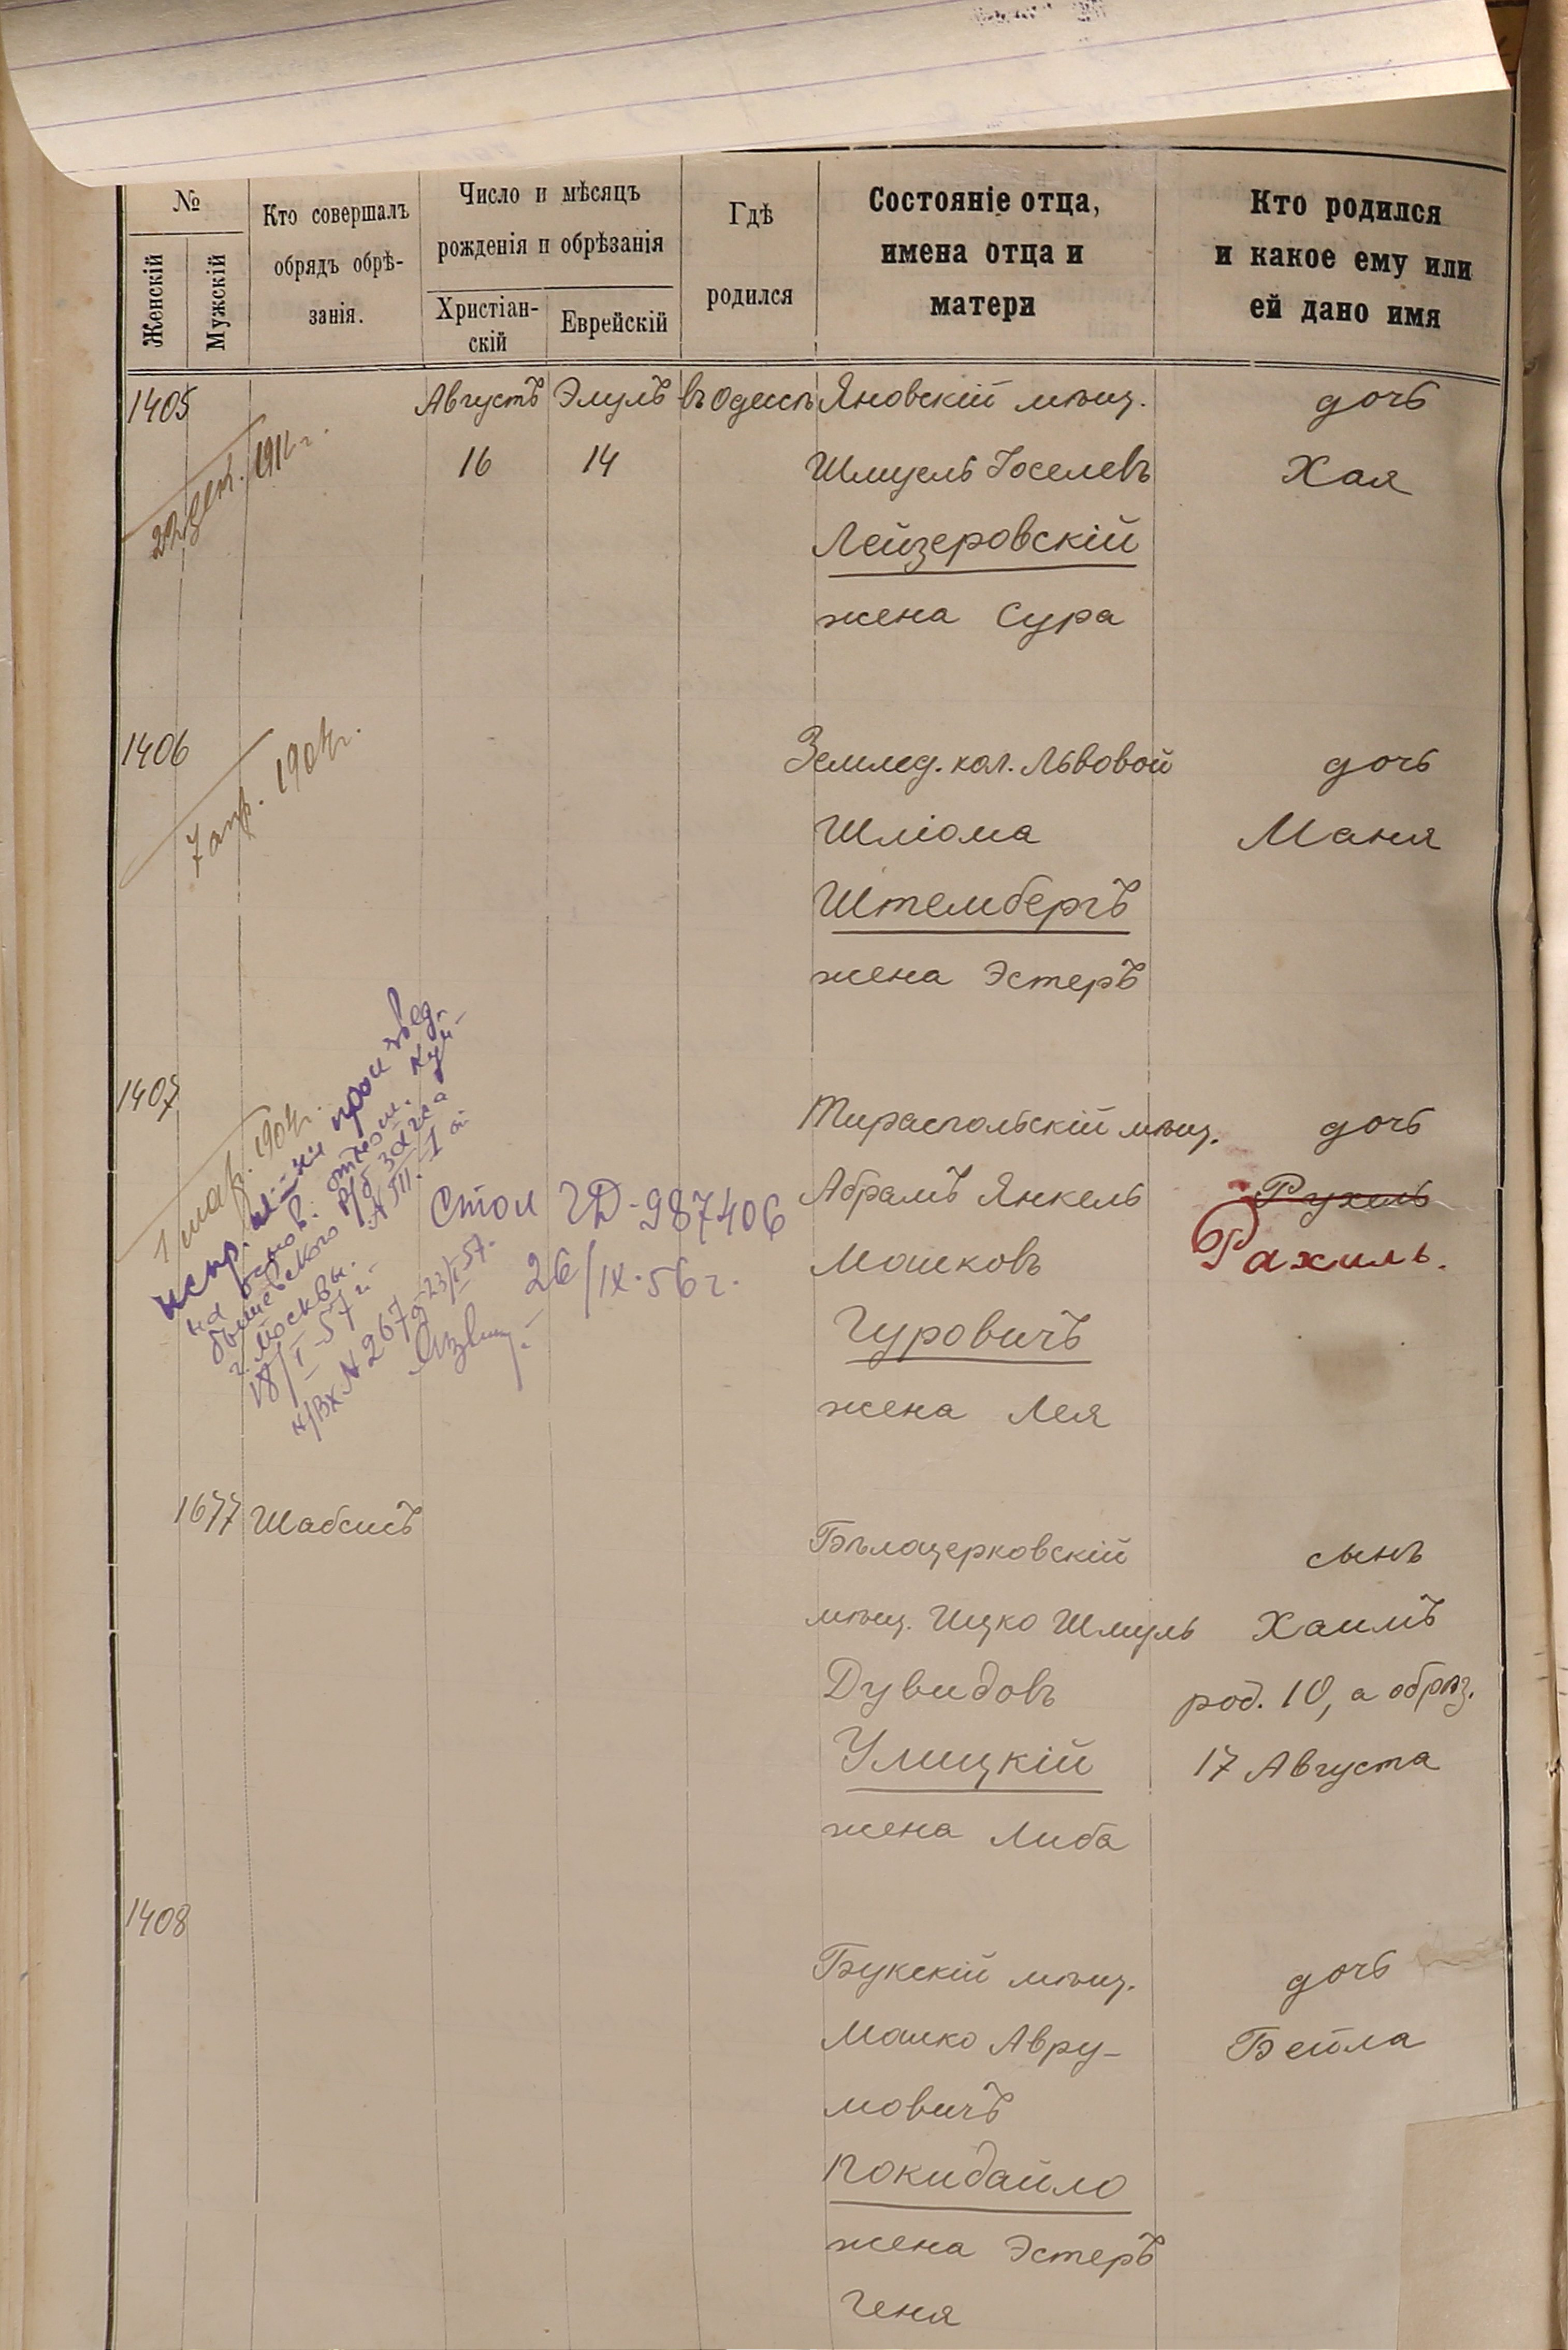 №
Женскій
Мужскій
Кто совершалъ
обрядъ обрѣ-
занія.
Число и мѣсяцъ
рожденія и обрѣзанія
Христіан-
скій
Еврейскій
Гдѣ
родился
Состояніе отца,
имена отца и
матери
Кто родился
и какое ему или
ей дано имя
1405
Августъ Элулъ въ Одессѣ Яновскій мѣщ. дочь
16 14 Шмуель Іоселевъ Хая
Лейзеровскій
жена Сура
1406
7 апр. 1904 г.
Землед. кол. Львовой дочь
Шліома Маня
Штембергъ
жена Эстеръ
1407
1 мар. 1904 г.
испр. произвед.
на основ. отнош. Куй-
бышевского р/б загса
г. Москвы.
18/I-57 г.
н/вх N 267 д-23/I 57.
Стол ГД-987406
26/IX-56 г.
Тираспольскій мѣщ. дочь
Абрамъ Янкель Рухель
Мошковъ Рахиль.
Гуровичъ
жена Лея
1677 Шабсисъ
Бѣлоцерковскій сынъ
мѣщ. Ицко Шмуль Хаимъ
Дувидовъ род. 10, а обрѣз.
Улицкій 17 Августа
жена Либа
1408
Букскій мѣщ. дочь
Мошко Авру- Бейла
мовичъ
Покидайло
жена Эстеръ
Геня